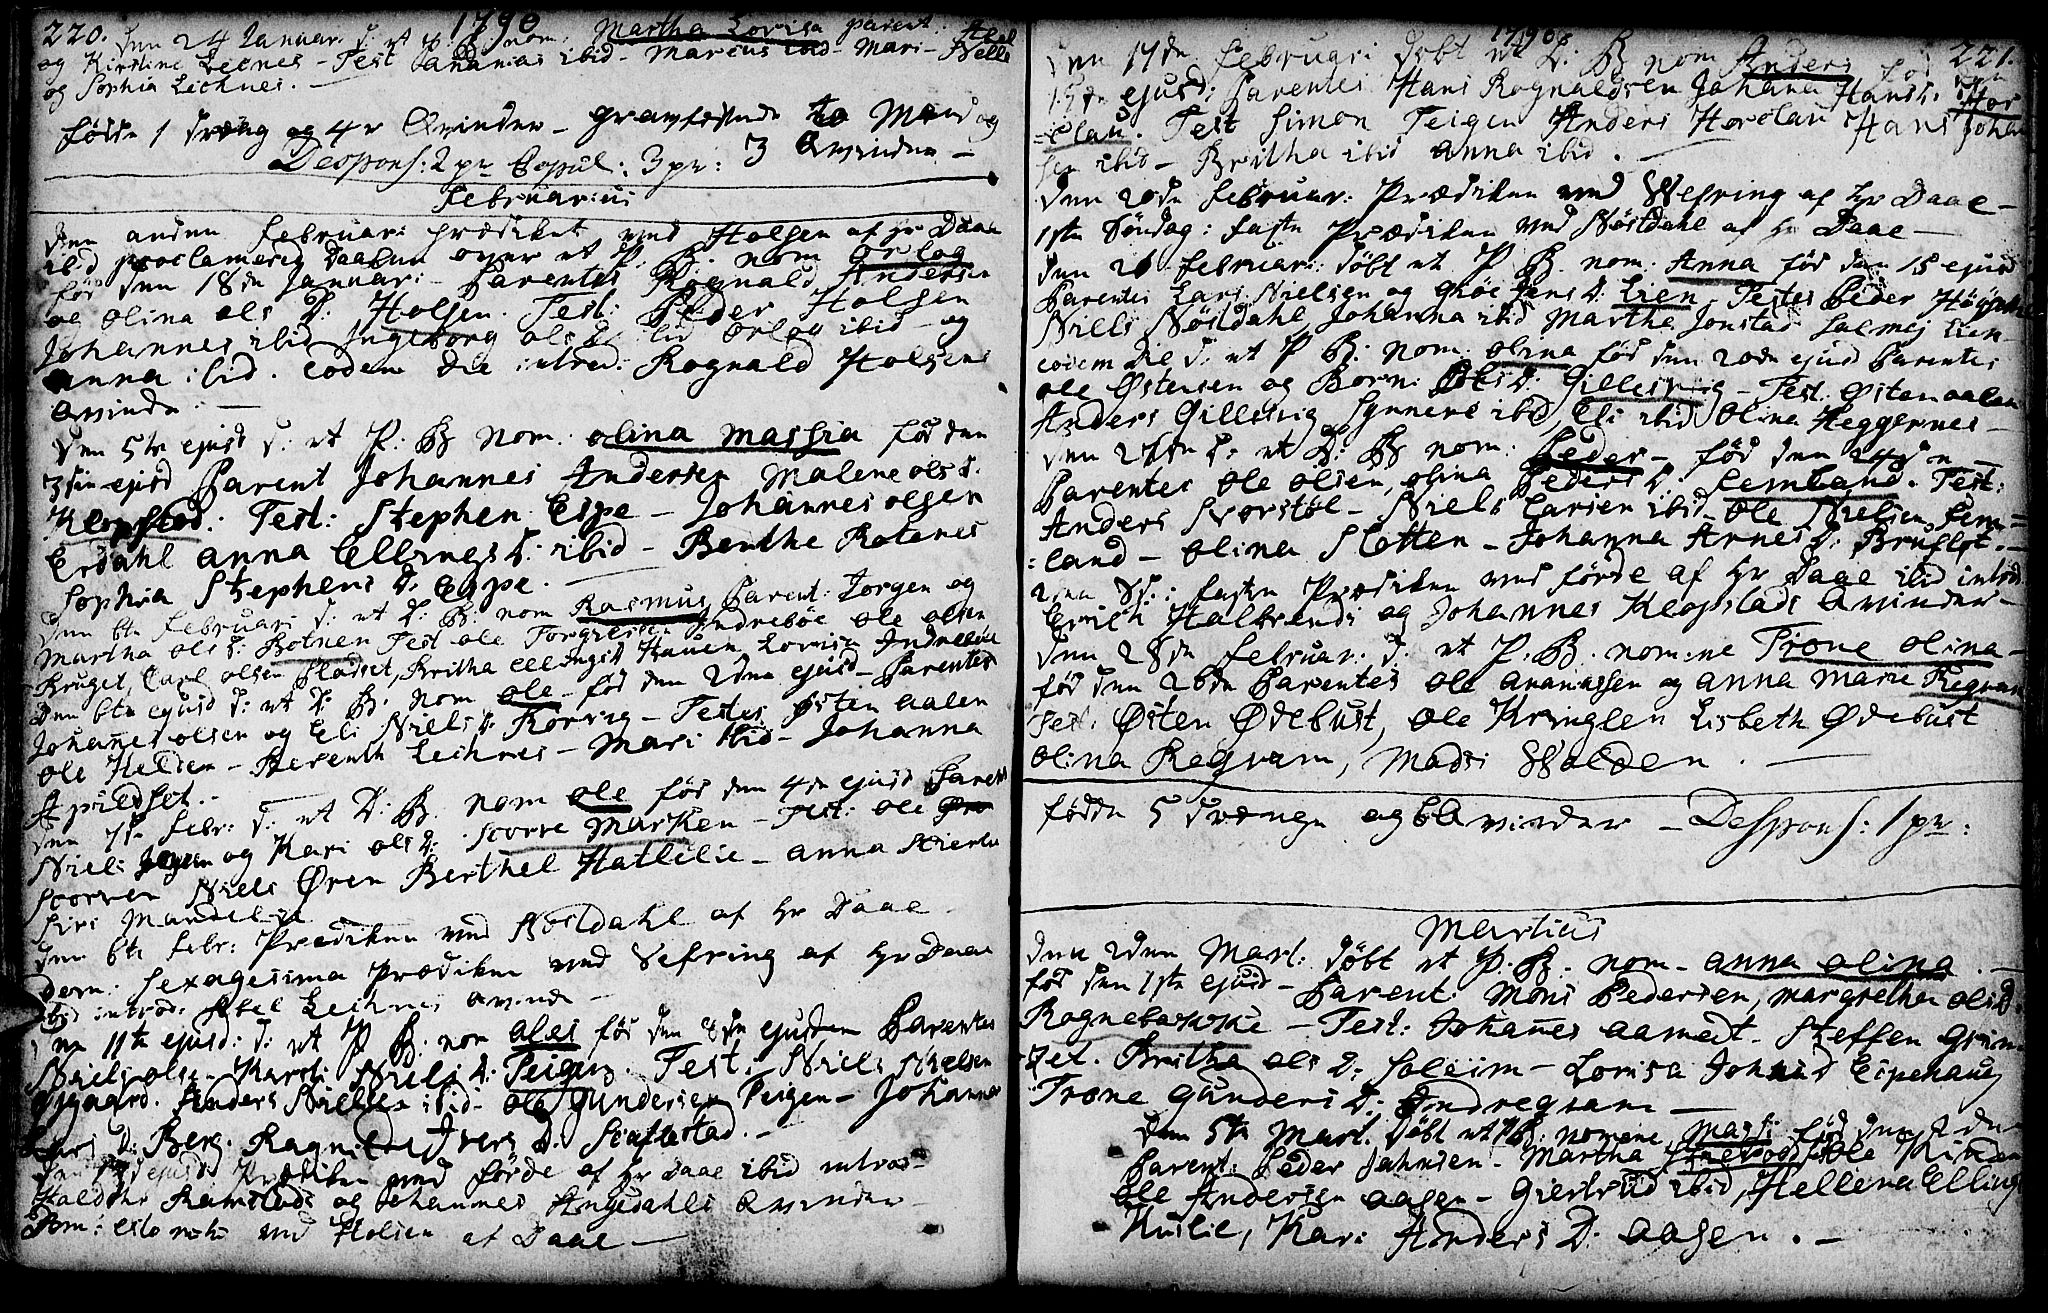 220. 1790
den 24 Januar: d: et P. B. nom: Martha Lovisa parent: Abel
og Kirstine Leenes - Test Ananias ibid - Marcus ibid - Mari - Nelle
og Sophia Lechnes. -
fødde 1 dreng og 4r Qvinder - gravfestende to Mand og
3 Qvinder -
Desponf: 2 pr Copul: 3 pr:
Februarius
den anden Februari prædiket ved Holsen af Hr Daae
ibid proclamerig daaben over et P. B. nom Orlog
fød den 18de Januar: - Parentes Rognald Andersen
og Olina Ols D: Holsen. Test: Peder Holsen
Johannes ibid Ingeborg Ols D: ibid Orlog ibid - og
Anna ibid. eodem die introd: Rognald Holsens
Qvinde. -
den 5te ejusd d: et P. B nom. Olina Massia fød den
3die ejusd Parent Johannes Andersen Malene Ols D.
Klopstad. Test: Stephen Espe - Johannes Olsen
Erdahl Anna Ellings D: ibid - Benthe Rotenes
Sophia Stephens D: Espe. -
den 6te Februari d: et D: B: nom Rasmus Parent: Jorgen og
Martha Ols D: Botnen Test Ole Torgersen Indrebøe Ole Olsen
Bruget, Carl Olsen Pladset, Britha Ellingsd Hauen Lovisa Indrebøe
den 6te ejusd d: et D: B. nom Ole - fød den 2den ejusd - Parentes
Johannes Olsen og Eli Niels D: Korvig - Testes Østen Aalen
Ole Helden - Berenth Lechnes - Mari ibid - Johanna
Apledset. -
den 7de Febr: d: et D: B: nom Ole fød den 4de ejusd Parent
Niels og Kari Ols D: Scorre Marken - Test: Ole
Scorven Niels Øren Berthel Hatlelie - Anna
Siri
den 6te Febr: Prædiken ved Nøsdahl af Hr Daae
dom. Sexagesima Prædiken ved Vefring af Hr Daae
ibid introd: Abel Lechnes Qvinde -
den 11te ejusd: d: et P B. nom Oles fød den 8de ejusdem Parentes
Niels Olsen Karst: Niels D: Teigen. Test: Niels Nielsen
Anders Nielsen ibid - Ole Gundersen Teigen - Johanna
Lars D: Berg. Ragnilde Ivers D: -
den ejusd Prædiken ved Førde af Hr Daae ibid introd -
Haldor Ramstads og Johannes Angedahls Qvinder -
Dom: Esto mihi ved Holsen af Daae -
1790. 221.
den 17de Februari døbt et D: B nom Anders fød den
15de ejusd: Parentes Hans Rognaldsen Johana Hans D: Hor
=slau. Test Simon Teigen Anders Horslau Hans Johan
sen ibid - Britha ibid Anna ibid. -
den 20de Februar: Prædiken ved Vefring af Hr Daae -
1ste Søndag: faste Prædiken ved Nøsdahl af Hr Daae -
den 21 Februari: døbt et P B. nom: Anna fød den 15 ejusd
Parentes Lars Nielsen og Giøe Jens D: Lien - Testes Peder
Niels Nøsdahl Johanna ibid Martha Jonstad Salmej Lien -
eodem die d: et P B: nom. Olina fød den 20de ejusd Parentes
Ole Østensen og Born: Ols D: Gillesvig - Test: Østen Aalen
Anders Gillesvig Synneve ibid Eli ibid Olina Heggernes -
den 27de d: et D: B nom: Peder - fød den 24de -
Parentes Ole Olsen, Olina Peders D: Femland. Test:
Anders Svorstøl - Niels Larsen ibid - Ole Nielsen Fem=
=land - Olina Slotten - Johanna Arnes D: Bruflot. -
2den S: : faste Prædiken ved Førde af Hr Daae ibid introd:
Erich Halbrends og Johannes Klopstads Qvinder -
den 28de Februar. d. et P. B. nomine Trone Olina -
fød den 26de Parentes Ole Ananiassen og Anna Marie Regvam
Test: Østen Ødebust, Ole Kringlen Lisbeth Ødebust
Olina Regvam, Madsi Wolden. -
fødde 5 drenge og 6 Qvinder - Desponf: 1 pr:
Martius
den 2den Mart: døbt et P. B. nom - Anna Olina. -
fød den 1ste ejusd - Parent: Mons Pedersen, Margretha Ols D:
Rognebakke - Test: Johannes Aamodt - Steffen Grim
set. Britha Ols D: Soleim - Lovisa Johns D Espehaug
Trone Gunders D: Indregvam -
den 5te Mart. døbt et P B: nomine Mari fød den 2den
Parent: Peder Jahnsen - Martha Ole
Ole Andersen Aasen - Giertrud ibid, Hellena Ellings
Huslie, Kari Anders D. Aasen. -